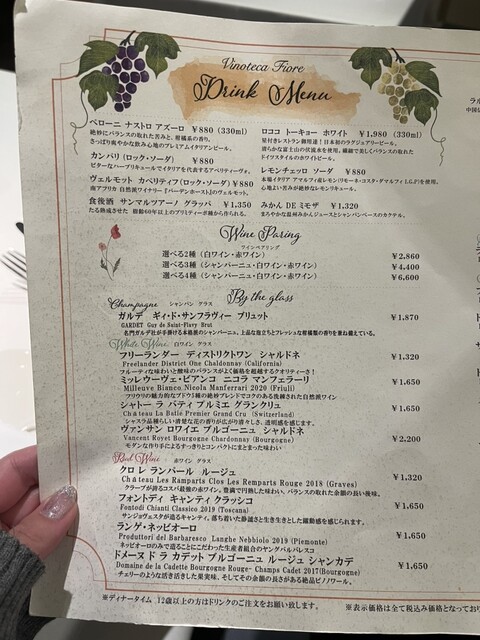 Vinoteca Fiore
Drink Menu
ペローニ ナストロ アズーロ ￥880 (330ml)
絶妙にバランスの取れた苦みと、柑橘系の香り。
さっぱり爽やかな飲み心地のプレミアムイタリアンビール。
カンパリ (ロック・ソーダ) ￥880
ビターなハーブリキュールでイタリアを代表するアペリティーヴォ。
ヴェルモット カペリティフ(ロック・ソーダ)￥880
南アフリカ 自然派ワイナリー『バーデンホースト』のヴェルモット。
食後酒 サンマルツアーノ グラッパ ￥1,350
たる熟成させた 樹齢60年以上のプリミティーボ種から作られる。
ロココ トーキョー ホワイト ￥1,980 (330ml)
星付きレストラン御用達！日本初のラグジュアリービール。
清らかな富士山の伏流水を使用。繊細で美しくバランスの取れた
ドイツスタイルのホワイトビール。
レモンチェッロ ソーダ ￥880
本場イタリア アマルフィ産レモン(リモーネ・コスタ・ダマルフィ I.G.P)を使用。
心地よい苦みが絶妙なレモンリキュール。
みかん DE ミモザ ￥1,320
まろやかな温州みかんジュースとシャンパンベースのカクテル。
Wine Paring
ワインペアリング
選べる2種 (白ワイン・赤ワイン) ￥2.860
選べる3種 (シャンパーニュ・白ワイン・赤ワイン) ￥4.400
選べる4種 (シャンパーニュ・白ワイン・赤ワイン) ￥6.600
By the glass
Champagne シャンパン グラス
ガルデ ギィ・ド・サンフラヴィー ブリュット ￥1.870
GARDET Guy de Saint-Flavy Brut
名門ガルデ社が手掛ける本格派のシャンパーニュ、上品な泡立ちとフレッシュな柑橘類の香りを兼ね備えている。
White Wine 白ワイン グラス
フリーランダー ディストリクトワン シャルドネ ￥1.320
Freelander District One Chaldonnay (California)
フルーティな味わいと酸味のバランスがよく価格を超越するクオリティーさ！
ミッレウーヴェ・ビアンコ ニコラ マンフェラーリ ￥1.650
Milleuve Bianco Nicola Manferrari 2020 (Friuli)
フリウリの魅力的なブドウ5種の絶妙ブレンドでコクのある洗練された自然派ワイン
シャトー ラ バティ プルミエ グランクリュ ￥1.650
Château La Batie Premier Grand Cru (Switzerland)
シャスラ品種らしい清楚な花の香りが広がり清々しさ、透明感を感じます。
ヴァンサン ロワイエ ブルゴーニュ シャルドネ ￥2,200
Vancent Royet Bourgogne Chardonnay (Bourgogne)
モダンな作り手によるすっきりとコンパクトにまとまった味わい
Red Wine 赤ワイン グラス
クロ レ ランパール ルージュ ￥1,320
Château Les Ramparts Clos Les Remparts Rouge 2018 (Graves)
クラーブが誇るコスパ最強の赤ワイン。豊満で円熟した味わい、バランスの取れた余韻の長い後味。
フォントディ キャンティ クラッシコ ￥1.650
Fontodi Chianti Classico 2019 (Toscana)
サンジョヴェスタが造るキャンティ。落ち着いた静謐さと生き生きとした躍動感を感じられます。
ランゲ・ネッビオーロ ￥1.650
Produttori del Barbaresco Langhe Nebbiolo 2019 (Piemonte)
ネッビオーロのみで造ることにこだわった生産者組合のヤングバルバレスコ
ドメーヌ ド ラ カデット ブルゴーニュ ルージュ シャンカデ ￥1.650
Domaine de la Cadette Bourgogne Rouge- Champs Cadet 2017(Bourgogne)
チェリーのような活き活きした果実味、そしてその余韻の長さがある絶品ピノノワール。
※ディナータイム 12歳以上の方はドリンクのご注文をお願い致します。
※表示価格は全て税込み価格となってお